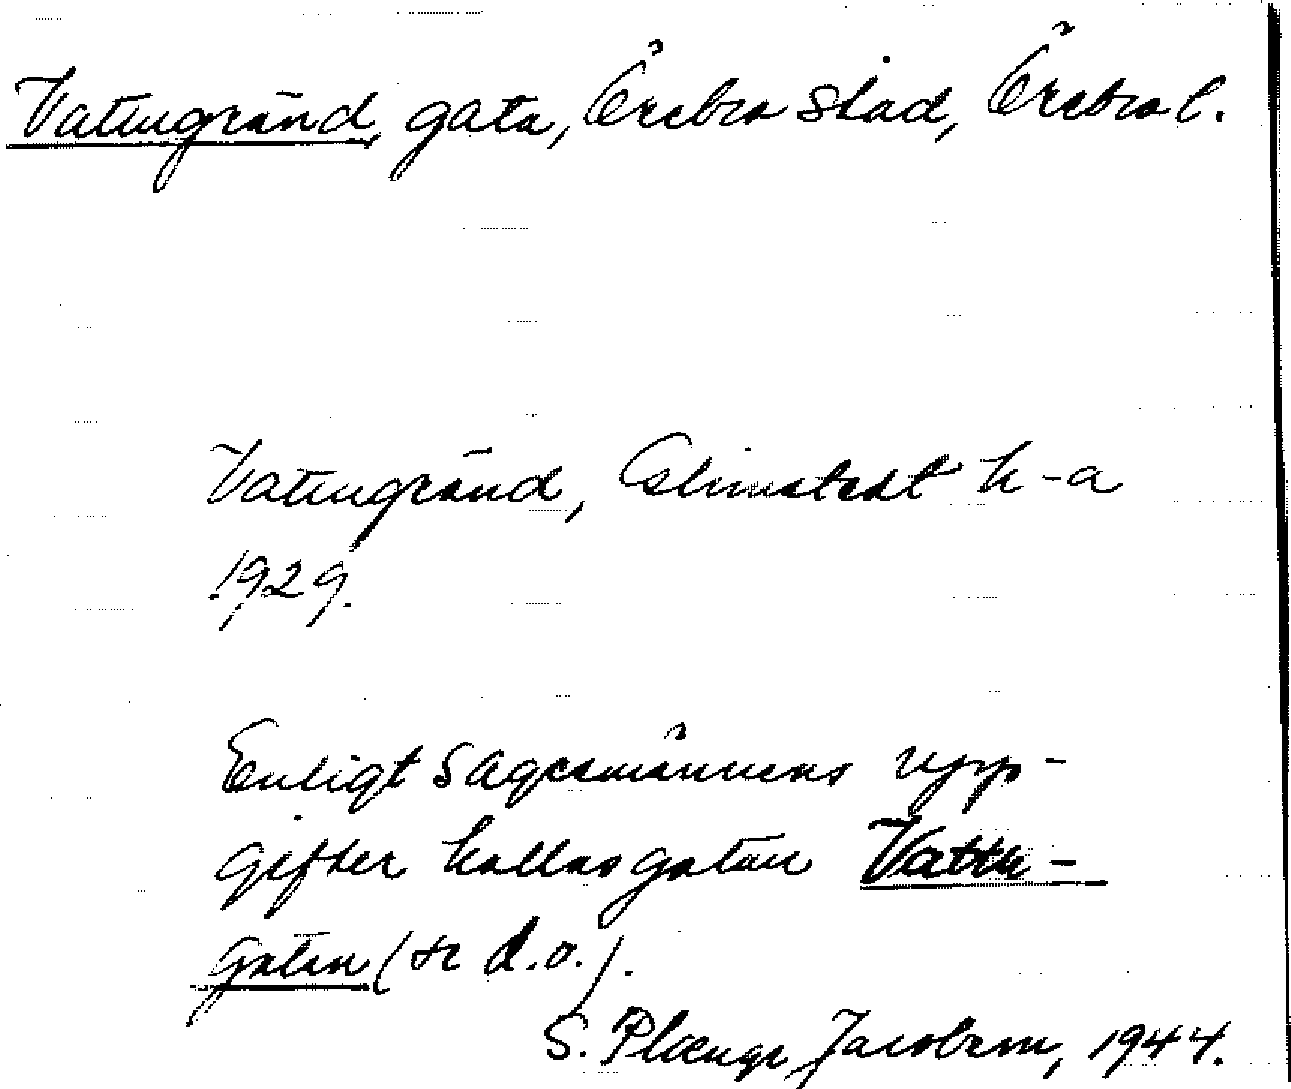 Vattugränd, gata, Örebro stad, Örebro l.
Vattugränd, Elmstedt k-a
1929.
Enligt sagesmännens upp-
gifter kallas gatan Vattu-
gatan (se d.o.).
S. Plœnge Jacobson, 1944.